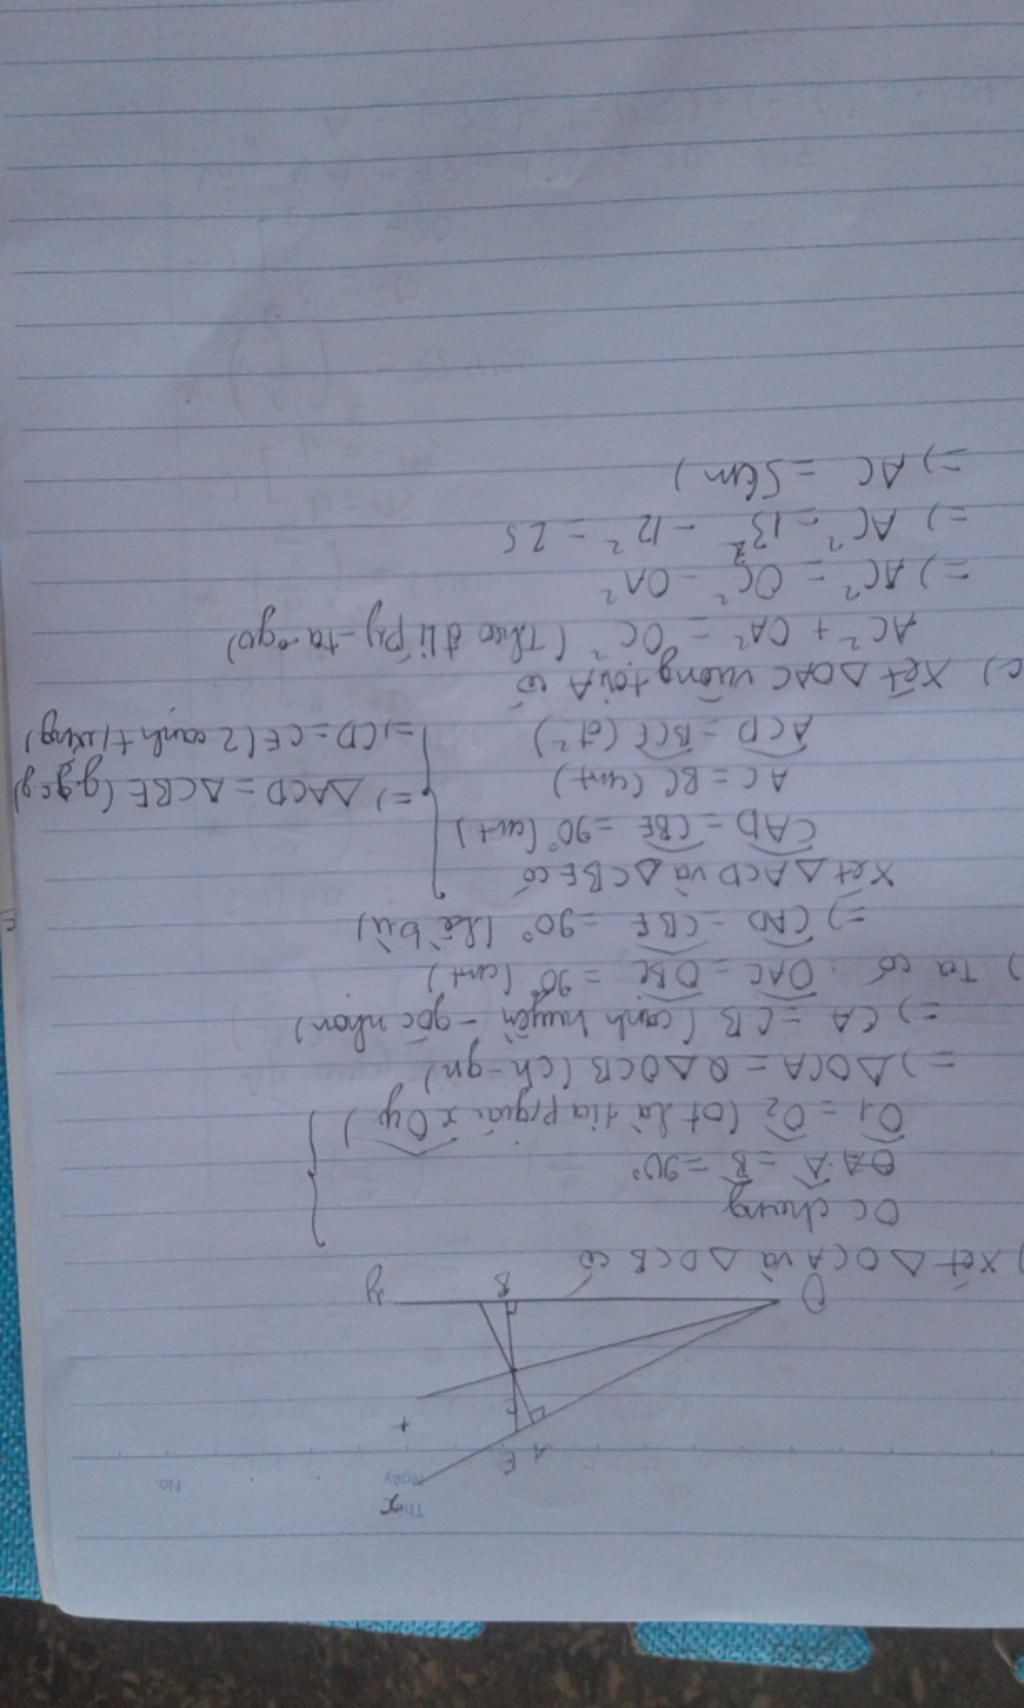 Thứ
Ngày
No.
x
E A
t
C
O
B
y
) Xét △OCA và △OCB có
OC chung
Â = B̂ = 90°
Ô1 = Ô2 (Ot là tia p/giác xÔy)
=) △OCA = △OCB (ch-gn)
=) CA = CB (cạnh huyền - góc nhọn)
) Ta có : OAC = OBC = 90° (cmt)
=) CAD = CBE = 90° (kề bù)
Xét △ACD và △CBE có
CAD = CBE = 90° (cmt)
AC = BC (cmt)
ACD = BCE (đ²)
=) △ACD = △CBE (g.c.g)
=) CD = CE (2 cạnh t/ứng)
c) Xét △OAC vuông tại A có
AC² + OA² = OC² (Theo đ lí Py-ta-go)
=) AC² = OC² - OA²
=) AC² = 13² - 12² = 25
=) AC = 5cm)